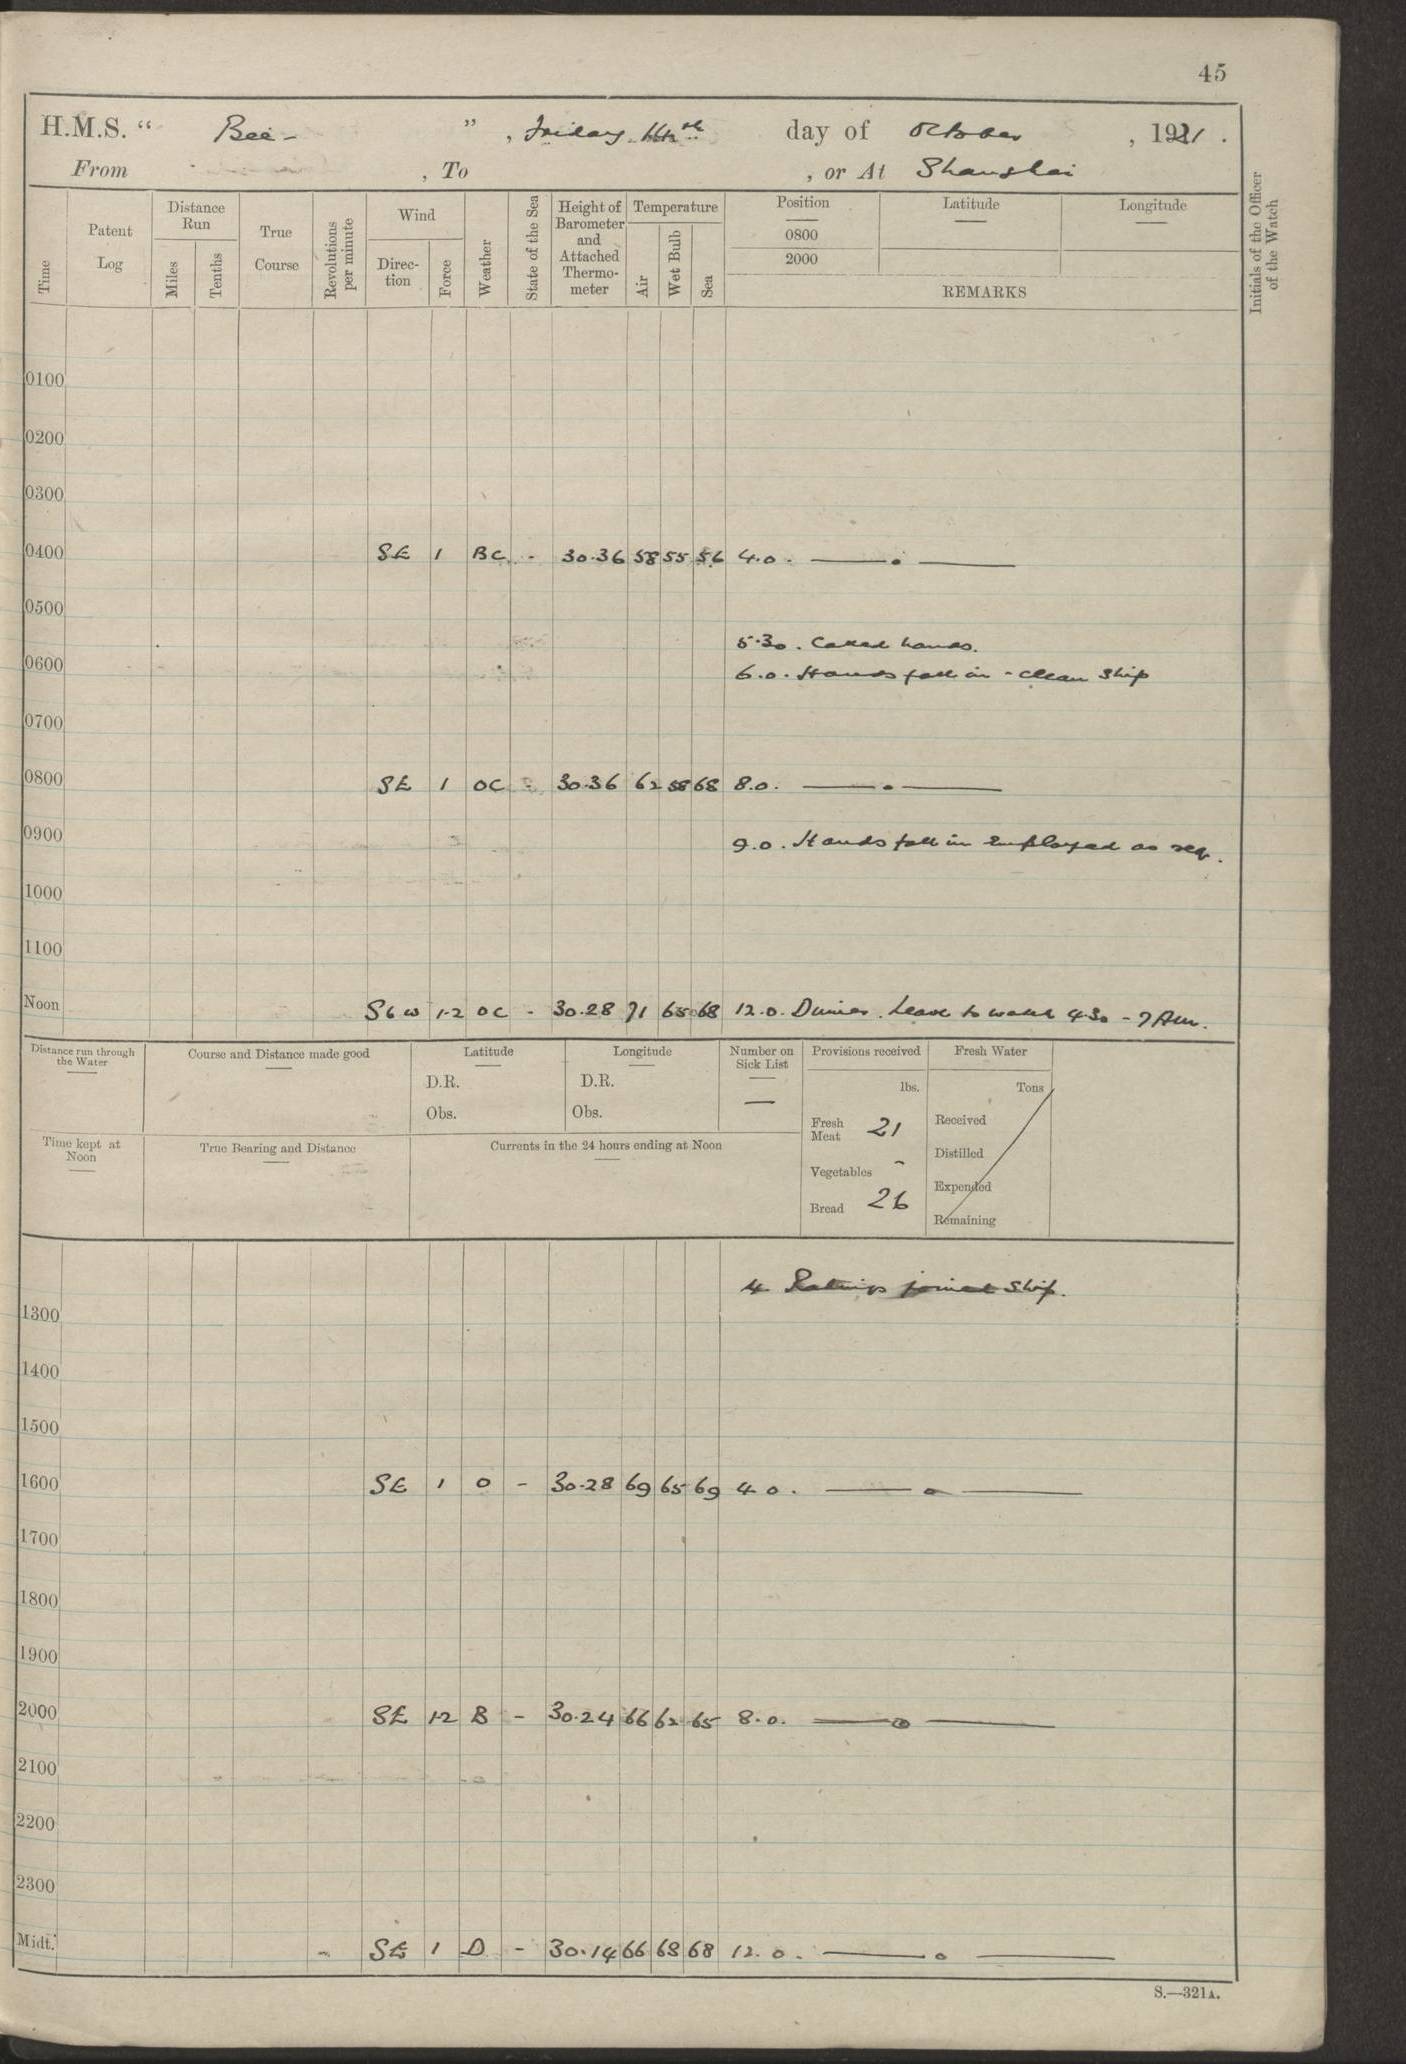 45
H.M.S. “ Bee - ” , Friday 14th day of October , 1921 .
From , To , or At Shanghai
Time
Patent Log
Distance Run
Miles
Tenths
True Course
Revolutions per minute
Wind
Direc-tion
Force
Weather
State of the Sea
Height of Barometer and Attached Thermo-meter
Temperature
Air
Wet Bulb
Sea
Position
0800
2000
Latitude
Longitude
REMARKS
Initials of the Officer of the Watch
0100
0200
0300
0400 SE 1 BC - 30.36 58 55 56 4.0. — . —
0500
5.30. Called hands.
0600
6.0. Hands fall in - clean ship
0700
0800 SE 1 OC - 30.36 62 58 68 8.0. — . —
0900 9.0. Hands fall in employed as req.
1000
1100
Noon SbW 1-2 OC - 30.28 71 65 68 12.0. Dinner. Leave to watch 4.30 - 7 Am.
Distance run through the Water
Course and Distance made good
Latitude
D.R.
Obs.
Longitude
D.R.
Obs.
Number on Sick List
—
Provisions received
lbs.
Fresh Meat 21
Vegetables -
Bread 26
Fresh Water
Tons
Received
Distilled
Expended
Remaining
Time kept at Noon
True Bearing and Distance
Currents in the 24 hours ending at Noon
4 Ratings joined ship.
1300
1400
1500
1600 SE 1 O - 30.28 69 65 69 4.0. — . —
1700
1800
1900
2000 SE 1-2 B - 30.24 66 62 65 8.0. — o —
2100
2200
2300
Midt. SE 1 D - 30.14 66 68 12.0. — o —
S.—321A.